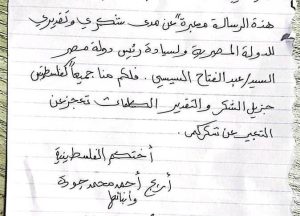 هذه الرسالة معبرة عن مدى شكري وتقديري
للدولة المصرية ولسيادة رئيس دولة مصر
السيد/ عبد الفتاح السيسي. فلكم منا جميعاً كفلسطين
جزيل الشكر والتقدير الكلمات تعجز عن
التعبير عن شكركم.
أختكم الفلسطينية
أريج أحمد محمد جودة
وأبنائها